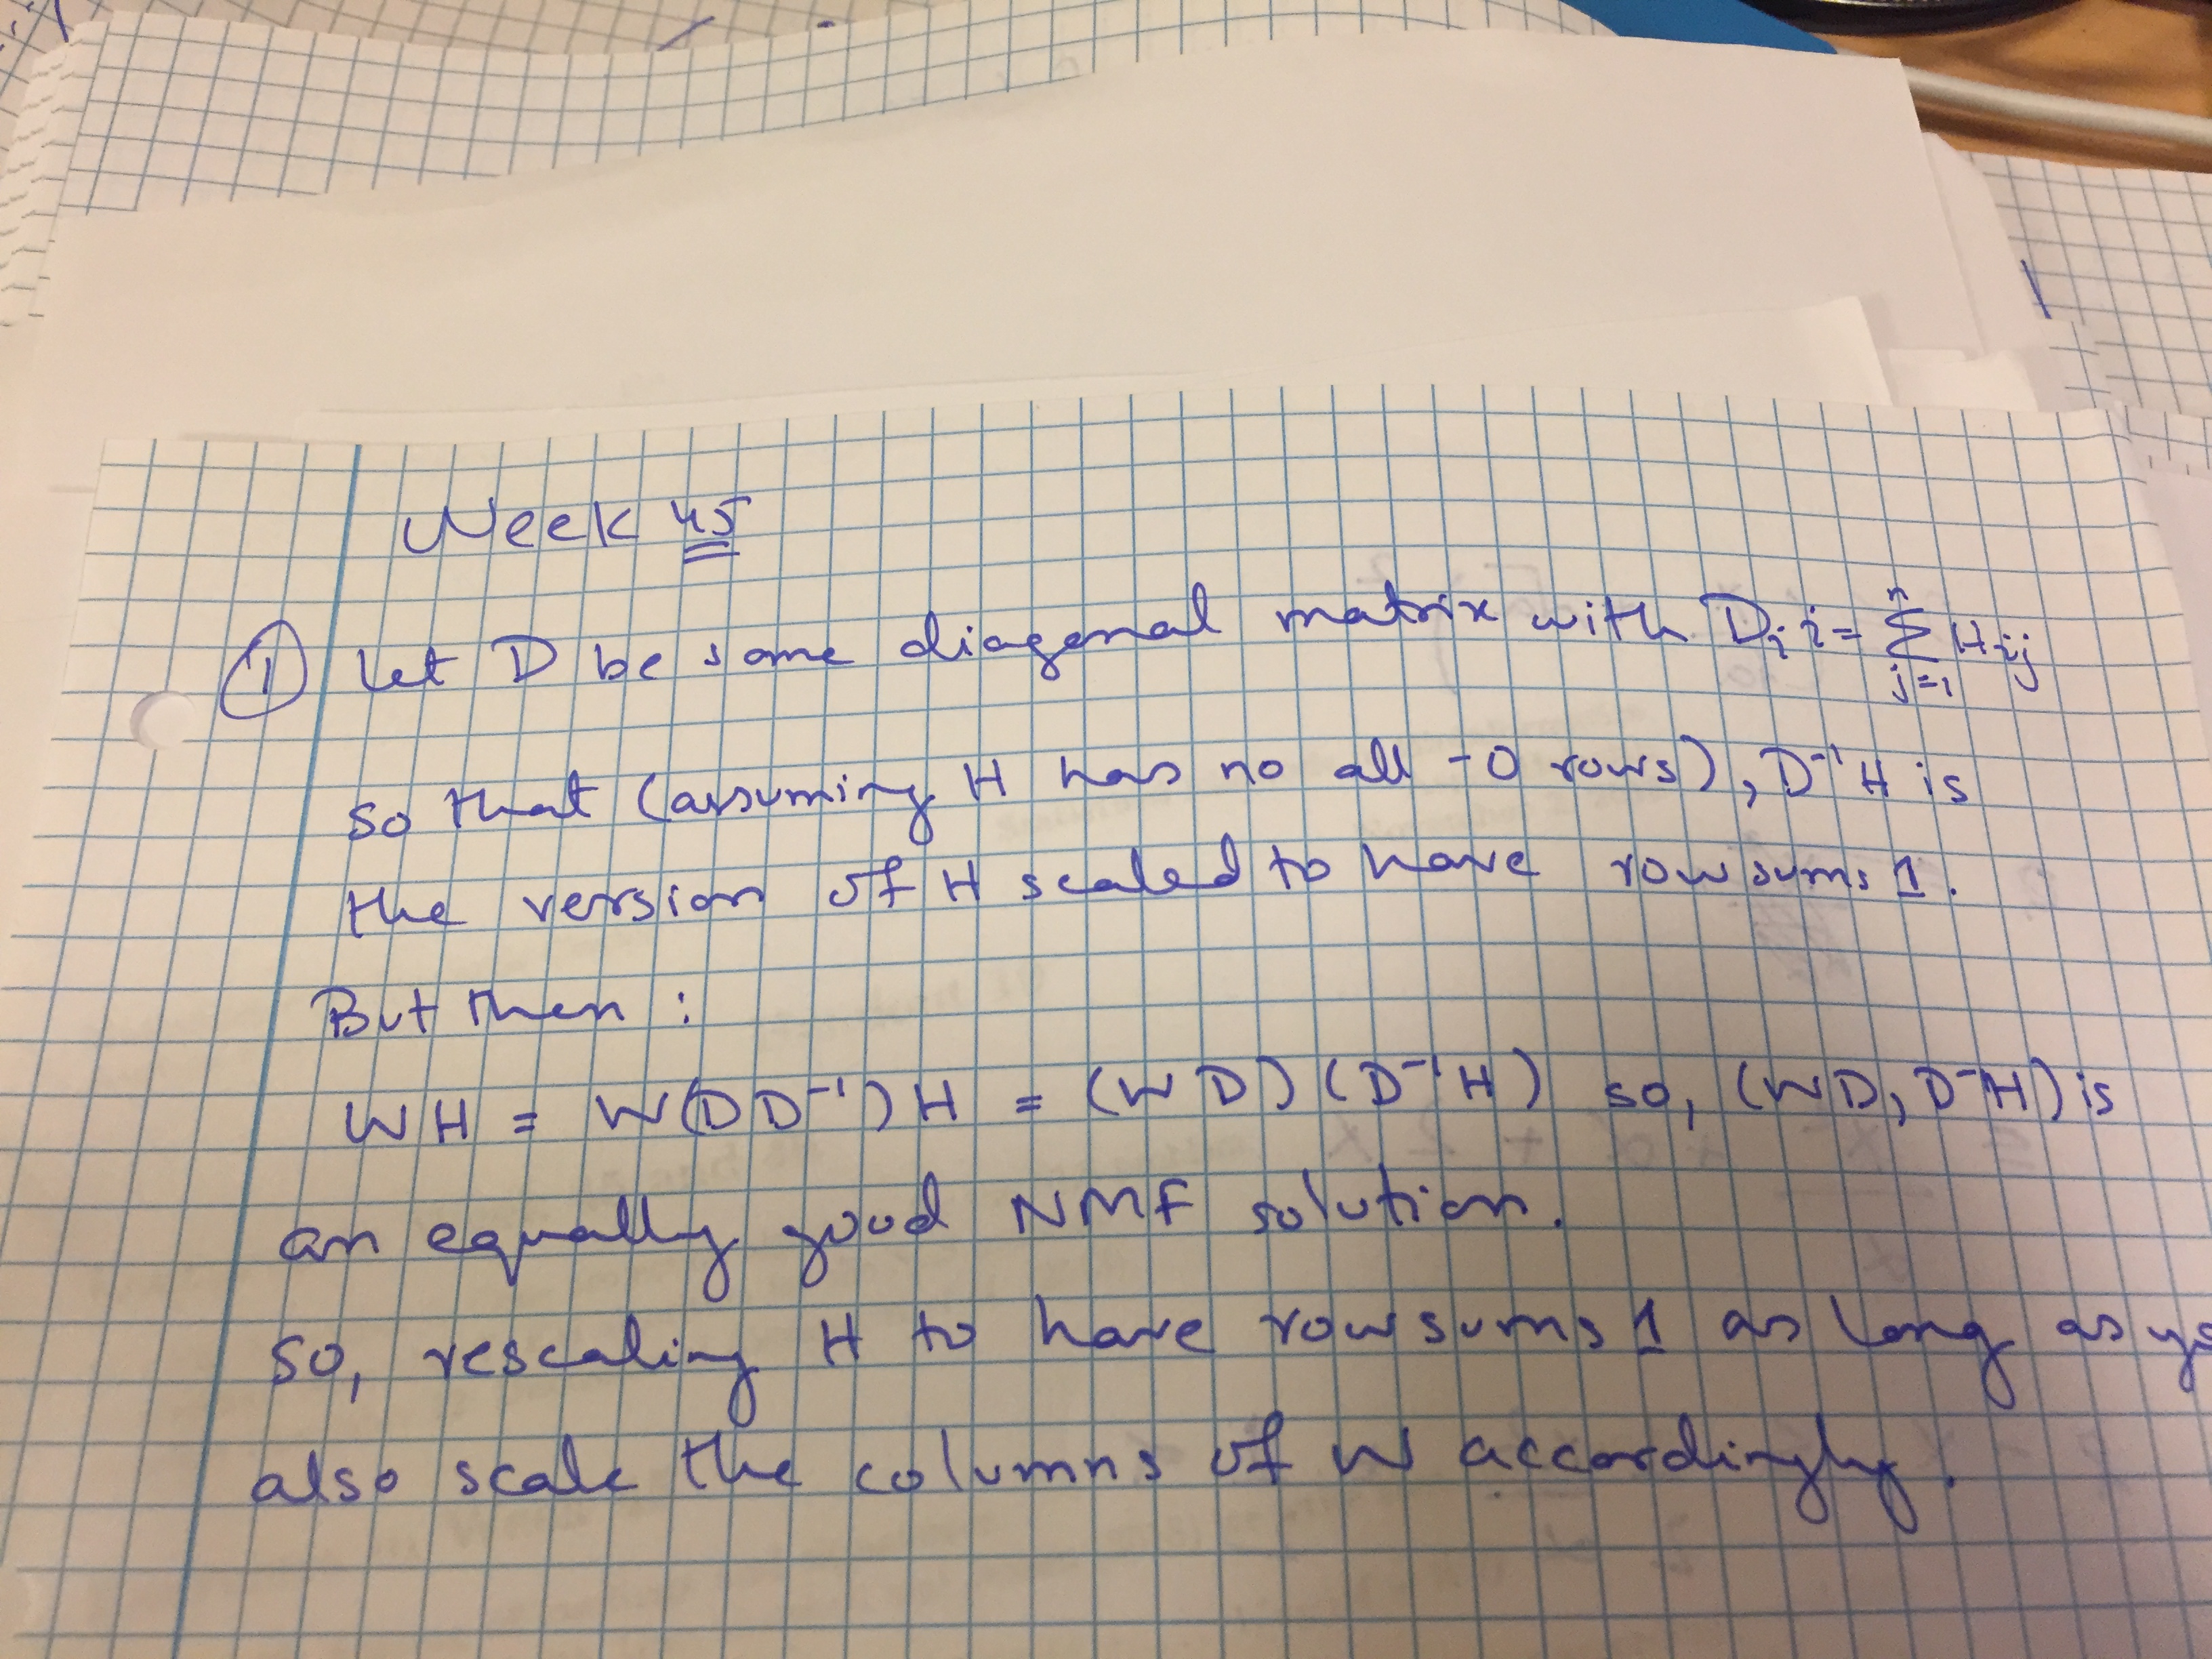 Week 45
① Let D be some diagonal matrix with Dᵢᵢ = Σⁿⱼ₌₁ Hᵢⱼ
so that (assuming H has no all-0 rows), D⁻¹H is
the version of H scaled to have row sums 1.
But then:
WH = W(DD⁻¹)H = (WD)(D⁻¹H) so, (WD, D⁻¹H) is
an equally good NMF solution.
So, rescaling H to have row sums 1 as long as
also scale the columns of W accordingly.